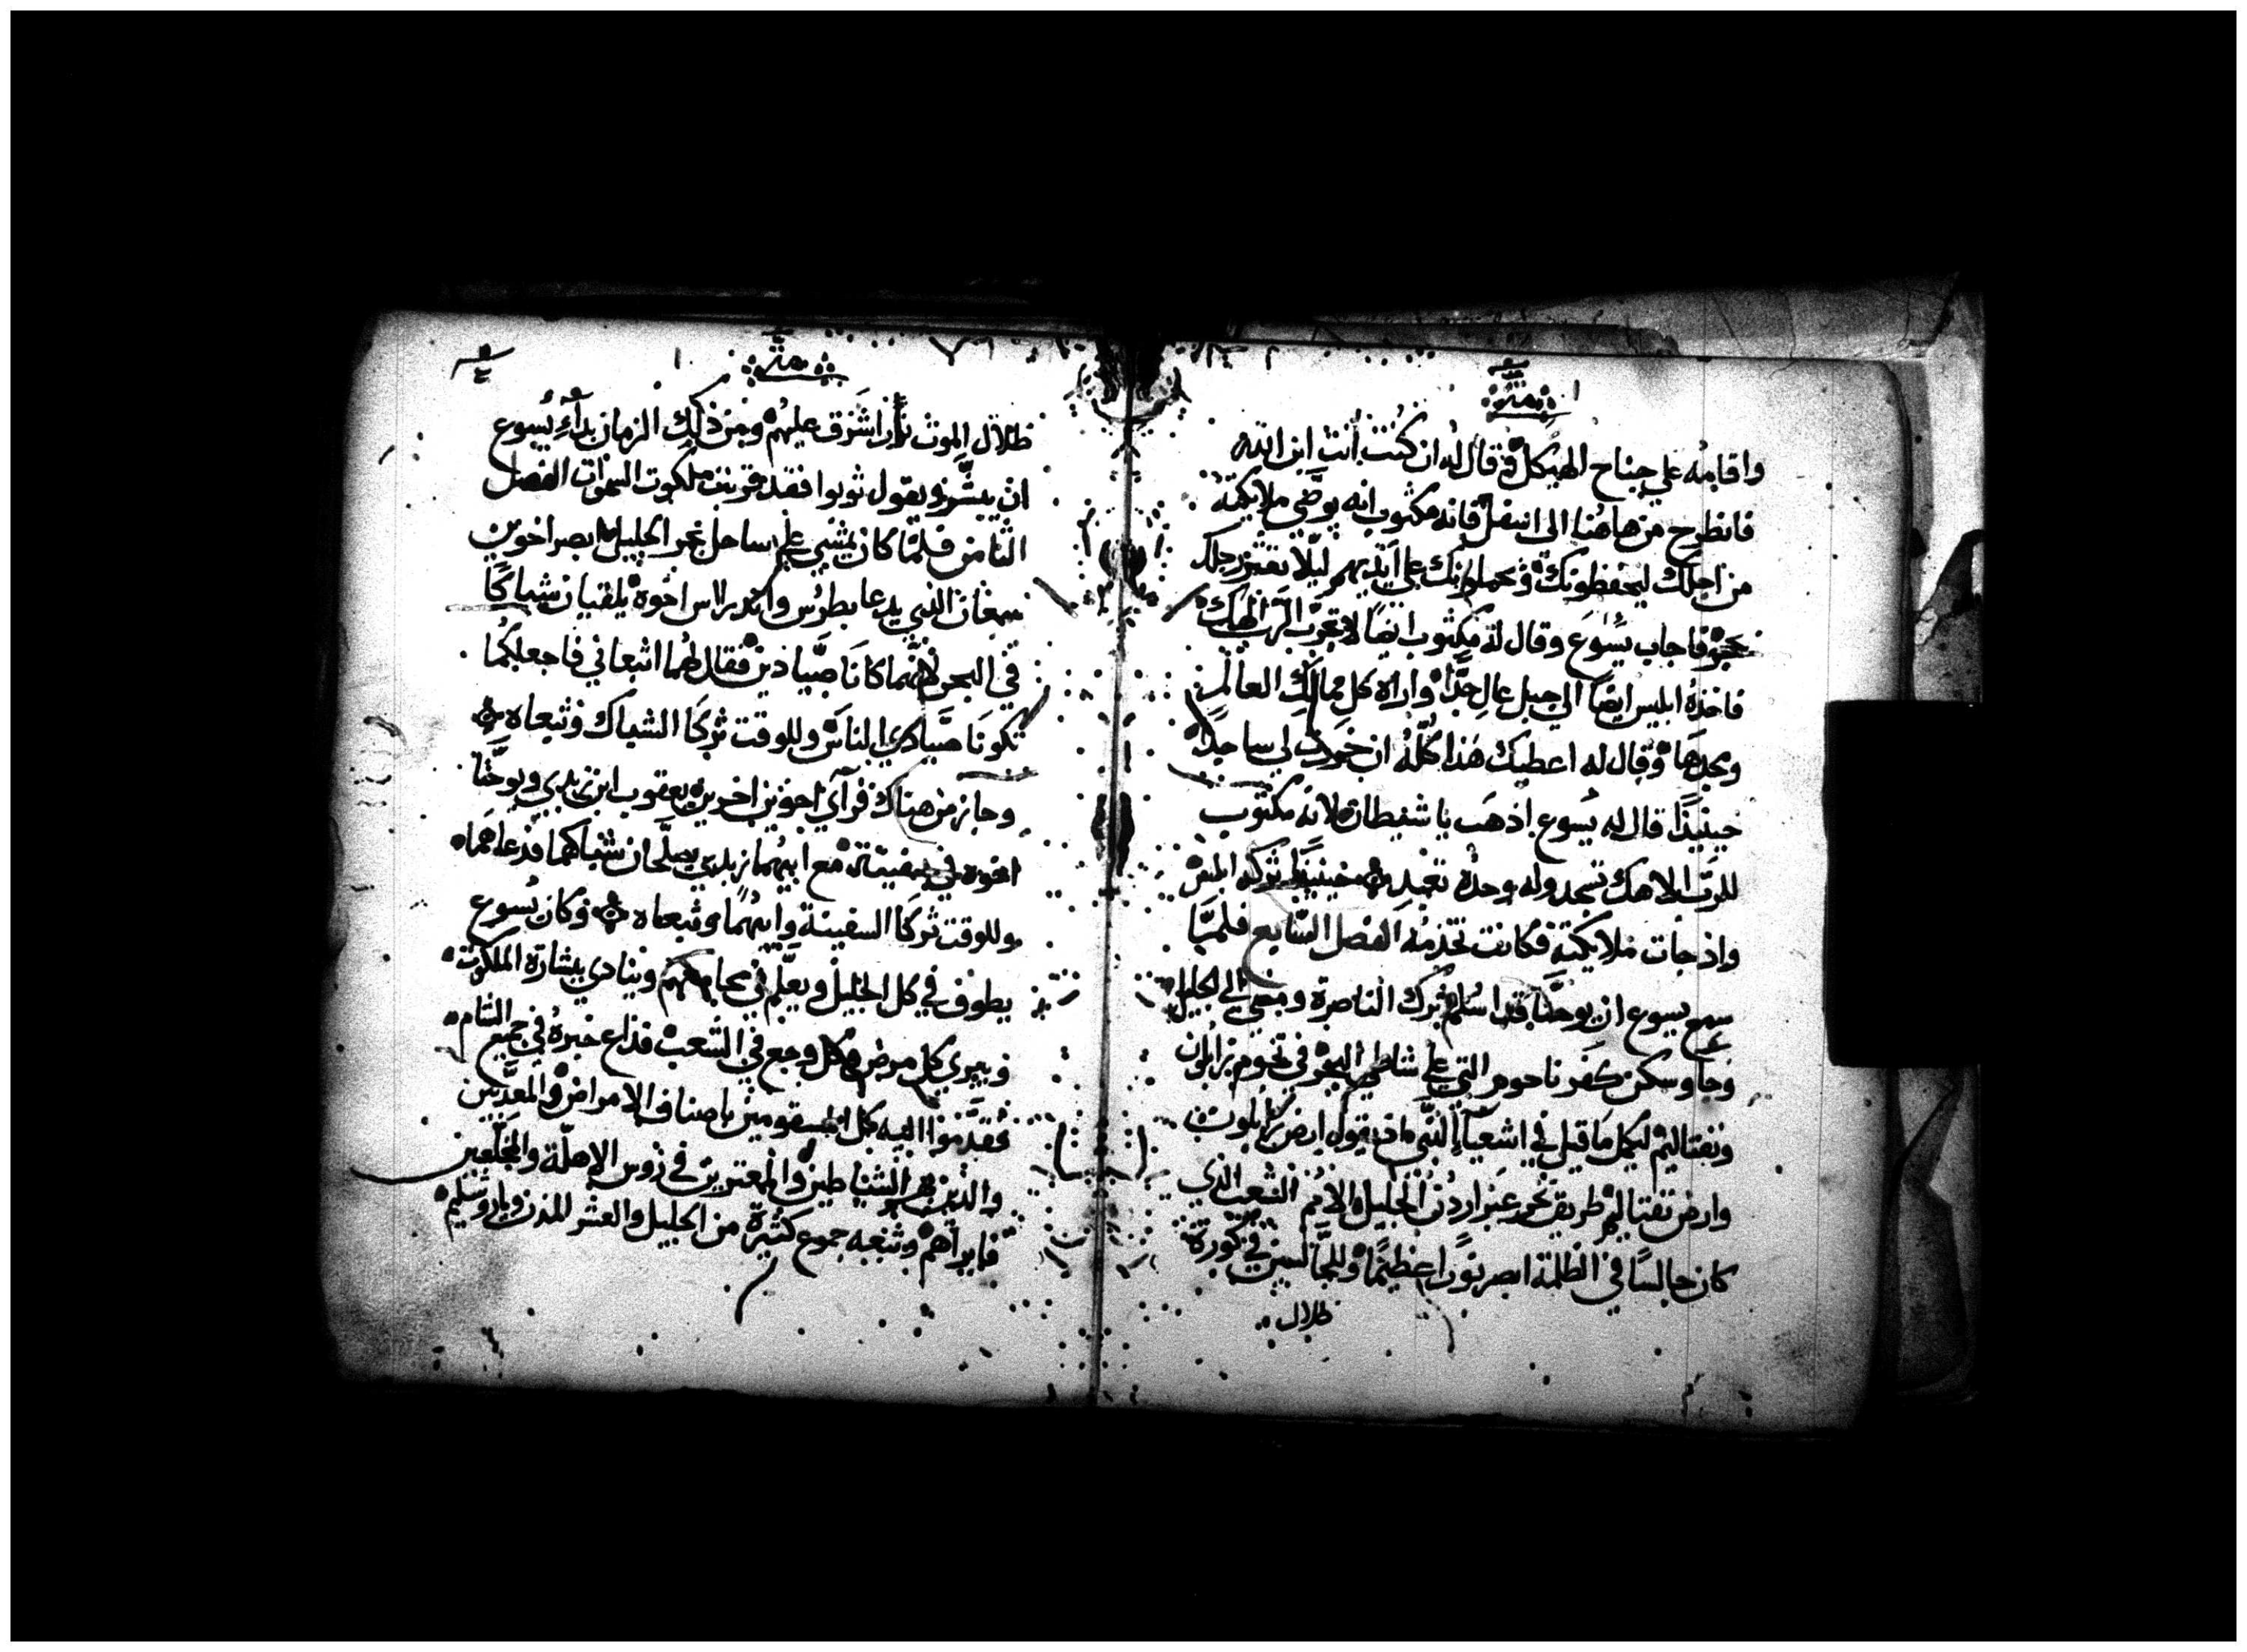 متى
واقامه علي جناح الهيكل وقال له ان كنت انت ابن الله
فانطرح من هاهنا الى اسفل فانه مكتوب انه يوصي ملايكته
من اجلك ليحفظونك وتحملونك علي ايديهم ليلا تعثر رجلك
بحجر فاجاب يسوع وقال له مكتوب ايضا لا تجرب الرب الهك
فاخذه ابليس ايضا الي جبل عال جدا واراه كل ممالك العالم
ومجدها وقال له اعطيك هذا كله ان خررت لي ساجدا
حينيذا قال له يسوع اذهب يا شيطان لانه مكتوب
للرب الاهك تسجد وله وحده تعبد حينيذا تركه ابليس
واذ جات ملايكته فكانت تخدمه الفصل السابع فلما
سمع يسوع ان يوحنا قد اسلم ترك الناصرة ومضي الي الجليل
وجا وسكن كفر ناحوم التي علي شاطي البحر في تخوم زابلون
ونفتاليم ليكمل ما قيل في اشعيا النبي اذ يقول ارض زابلون
وارض نفتاليم طريق البحر عبر اردن الجليل الامم الشعب الذي
كان جالسا في الظلمة ابصر نورا عظيما وللجالسين في كورة
ظلال
متى
ظلال الموت نورا اشرق عليهم ومن ذلك الزمان بداء يسوع
ان يبشر ويقول توبوا فقد قربت ملكوت السموات الفصل
الثامن فلما كان يمشي علي ساحل بحر الجليل ابصر اخوين
سمعان الذي يدعا بطرس واندراس اخوه يلقيان شباكا
في البحر لانهما كانا صيادين فقال لهما اتبعاني فاجعلكما
تكونا صيادي الناس وللوقت تركا الشباك وتبعاه
وجاز من هناك فرآي اخوين اخرين يعقوب ابن زبدي ويوحنا
اخوه في سفينة مع ابيهما زبدي يصلحان شباكهما فدعاهما
وللوقت تركا السفينة وابيهما وتبعاه وكان يسوع
يطوف في كل الجليل ويعلم في مجامعهم وينادي ببشارة الملكوت
ويبري كل مرض وكل وجع في الشعب فذاع خبره في جميع الشام
فقدموا اليه كل المسقومين باصناف الامراض والمعذبين
والذين بهم الشياطين والمعترين في روس الاهلة والمخلعين
فابراهم وتبعه جموع كثيرة من الجليل والعشر المدن وياروشليم